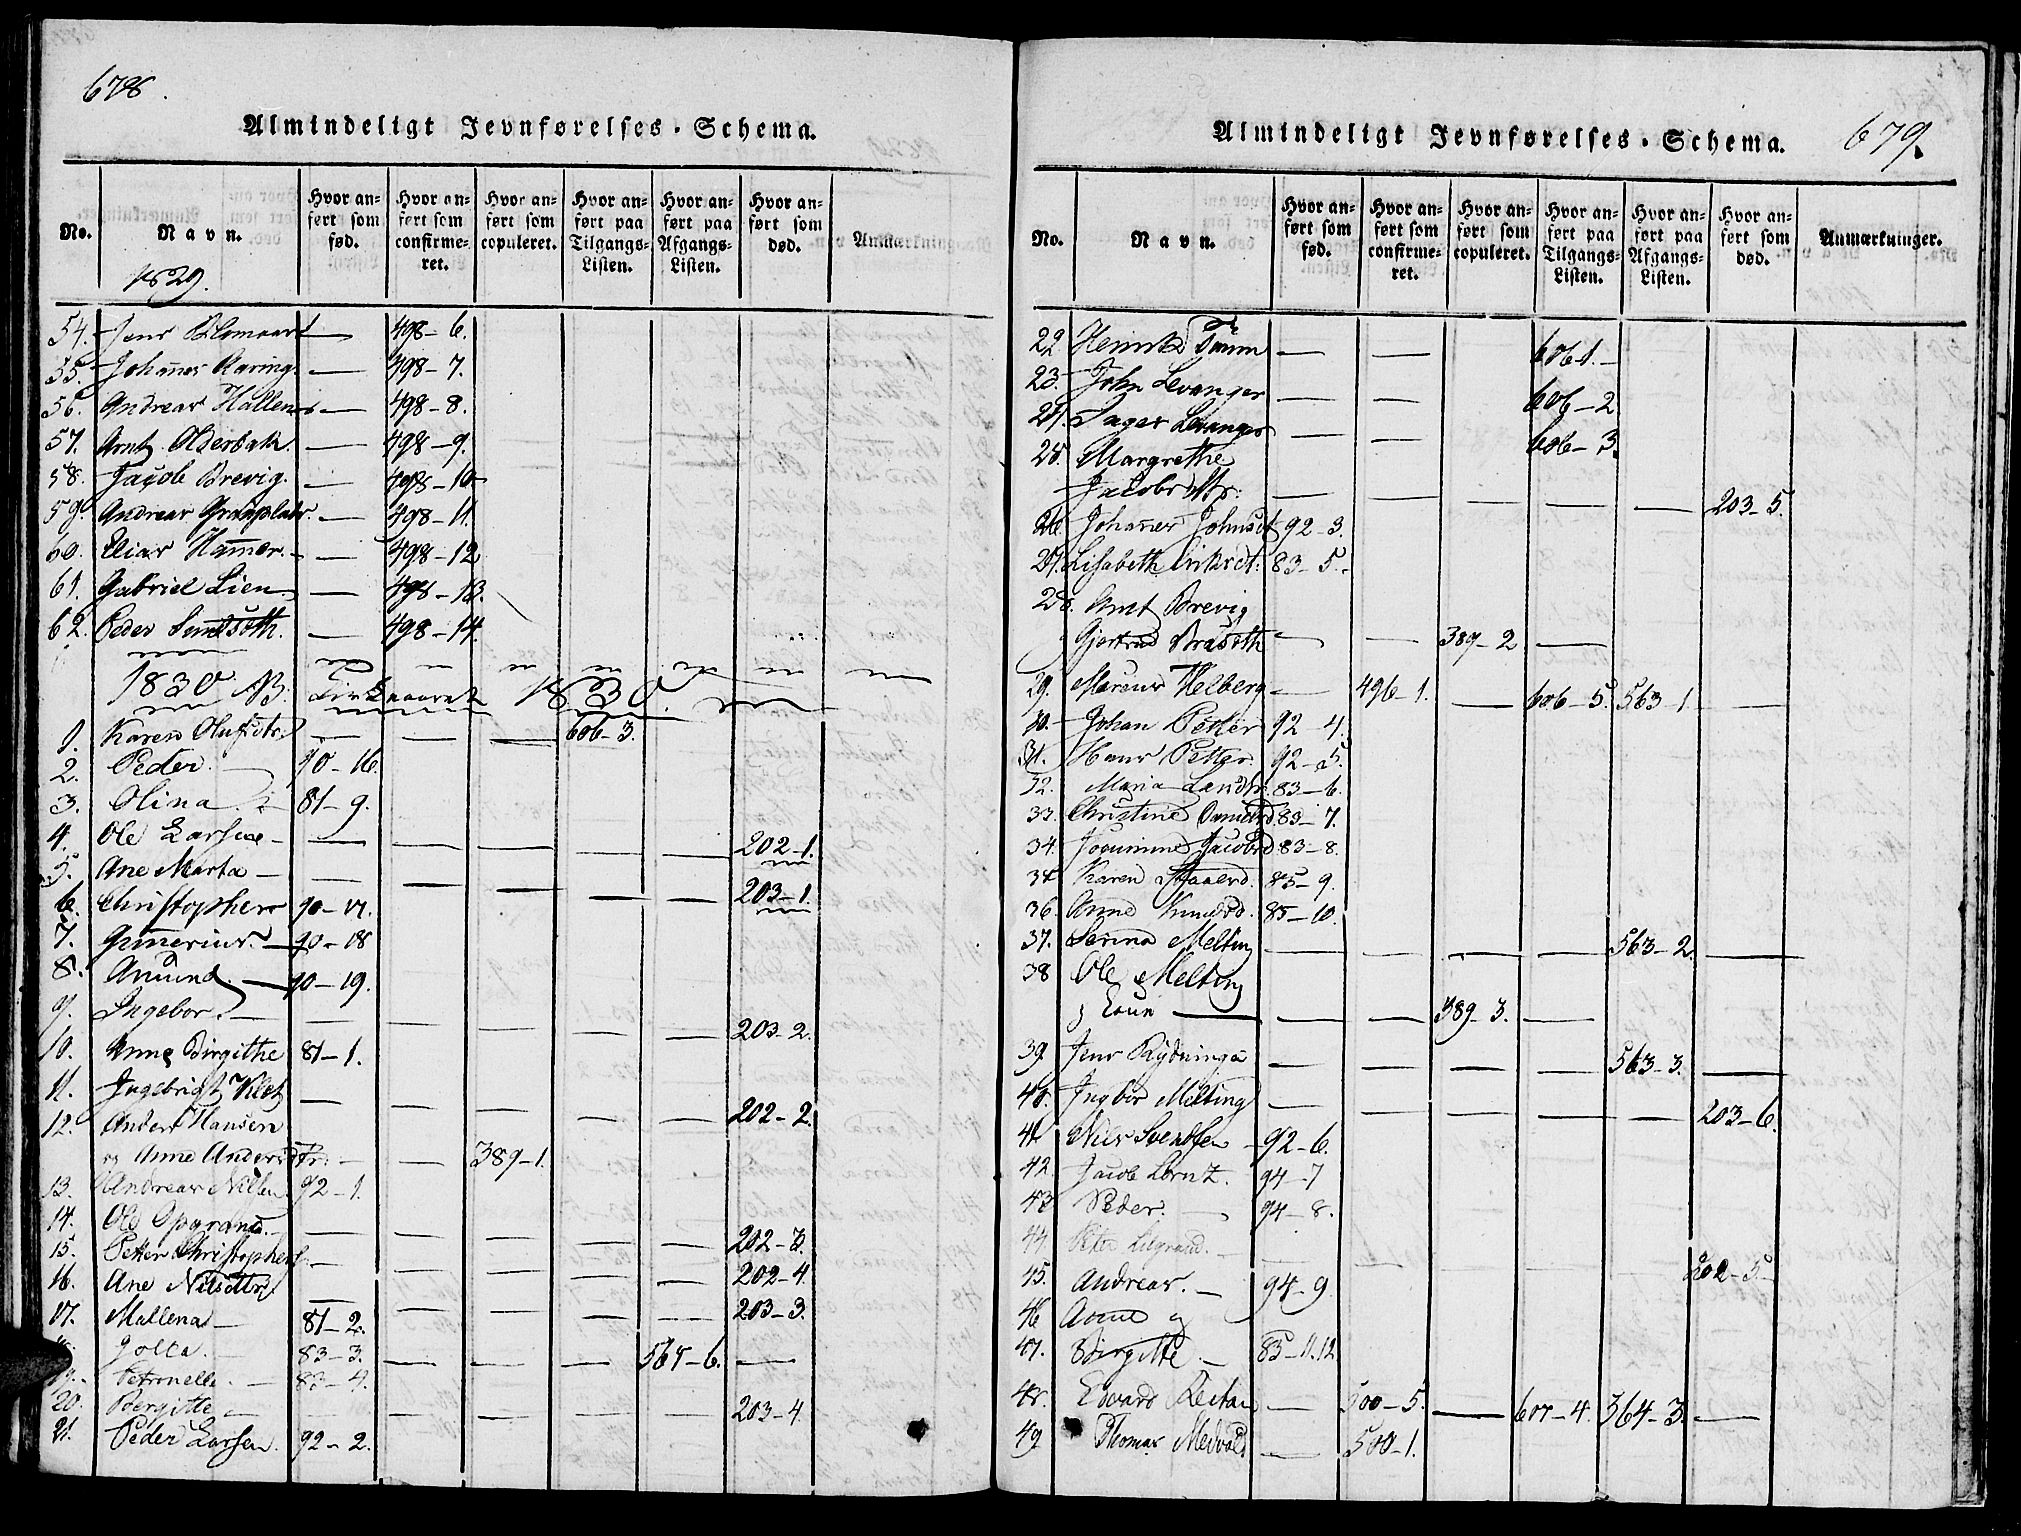 678.
Almindeligt Jevnførelses-Schema.
No. Navn. Hvor anført som fød. Hvor anført som confirmeret. Hvor anført som copuleret. Hvor anført paa Tilgangs-Listen. Hvor anført paa Afgangs-Listen. Hvor anført som død. Anmærkninger
1829.
54. Jens — 498-6.
55. Johannes Karings. — 498-7.
56. Andreas Hallem — 498-8.
57. Arnt — 498-9.
58. Jacob Brevig. — 498-10
59. Andreas — 498-11.
60. Elias Hammer. — 498-12
61. Gabriel Lien — 498-13.
62. Peder — 498-14.
1830 NB. Kirkeaaret 1830.
1. Karen Olufsdtr. — — — 606-3.
2. Peder. 90-16.
3. Olina 81-9.
4. Ole Larsen — — — — — 202-1.
5. Ane Marta — — — — — 203-1.
6. Christopher 90-17.
7. Gunnerius. — 90-18
8. Amund. — 90-19.
9. Ingebor. — — — — — 203-2.
10. Anne Birgithe 81-1.
11. Ingebrigt Klet — — — — — 202-2.
12. Anders Hansen
og Anne Andersdtr: — — 389-1.
13. Andreas Nilsen 92-1.
14. Ole Opgrand. — — — — — 202-3.
15. Petter Christophers. — — — — — 202-4.
16. Ane Nilsdttr. — — — — — 203-3.
17. Mallena — 81-2.
Golla. 83-3. — — — 564-6. —
Petronelle. — 83-4.
20. Bergitte — — — — — 203-4.
21. Peder Larsen. 92-2.
Almindeligt Jevnførelses-Schema. 679.
No. Navn. Hvor anført som fød. Hvor anført som confirmeret. Hvor anført som copuleret. Hvor anført paa Tilgangs-Listen. Hvor anført paa Afgangs-Listen. Hvor anført som død. Anmærkninger.
22 Henrik — — 606-1.
23. John Levanger — — 606-2
24. Inger Levanger — — 606-3.
25. Margrethe
Jacobsdttr: — — — — — 203-5.
26. Johannes Johnsdt 92-3.
27. Lisabeth 83-5.
28. Arnt Brevig
Gjertrud — — 389-2 —
29. Marcus Helberg — 496-1. — 606-5. 563-1 —
30. Johan Petter 92-4.
31. Hans Petter. 92-5.
32. Maria 83-6.
33. Christine 83-7.
34. Jacobsd 83-8.
35 Karen 85-9.
36. Anne 85-10.
37. Serina Melting — — — — 563-2. —
38 Ole Melting
— — — 389-3. —
39 Jens Rydninga — — — — 563-3. —
40. Ingbor Melting — — — — — 203-6.
41 Nils Svendsen 92-6.
42. Jacob Lorntz. 94-7
43 Peder. — 94-8.
44. Peter — — — — — 202-5.
45. Andreas. — 94-9
46 og
47. Birgitte. — 85-11.12.
48. Edvard — 500-5. — 607-4. 564-3. —
49 Thomas — 500-1.